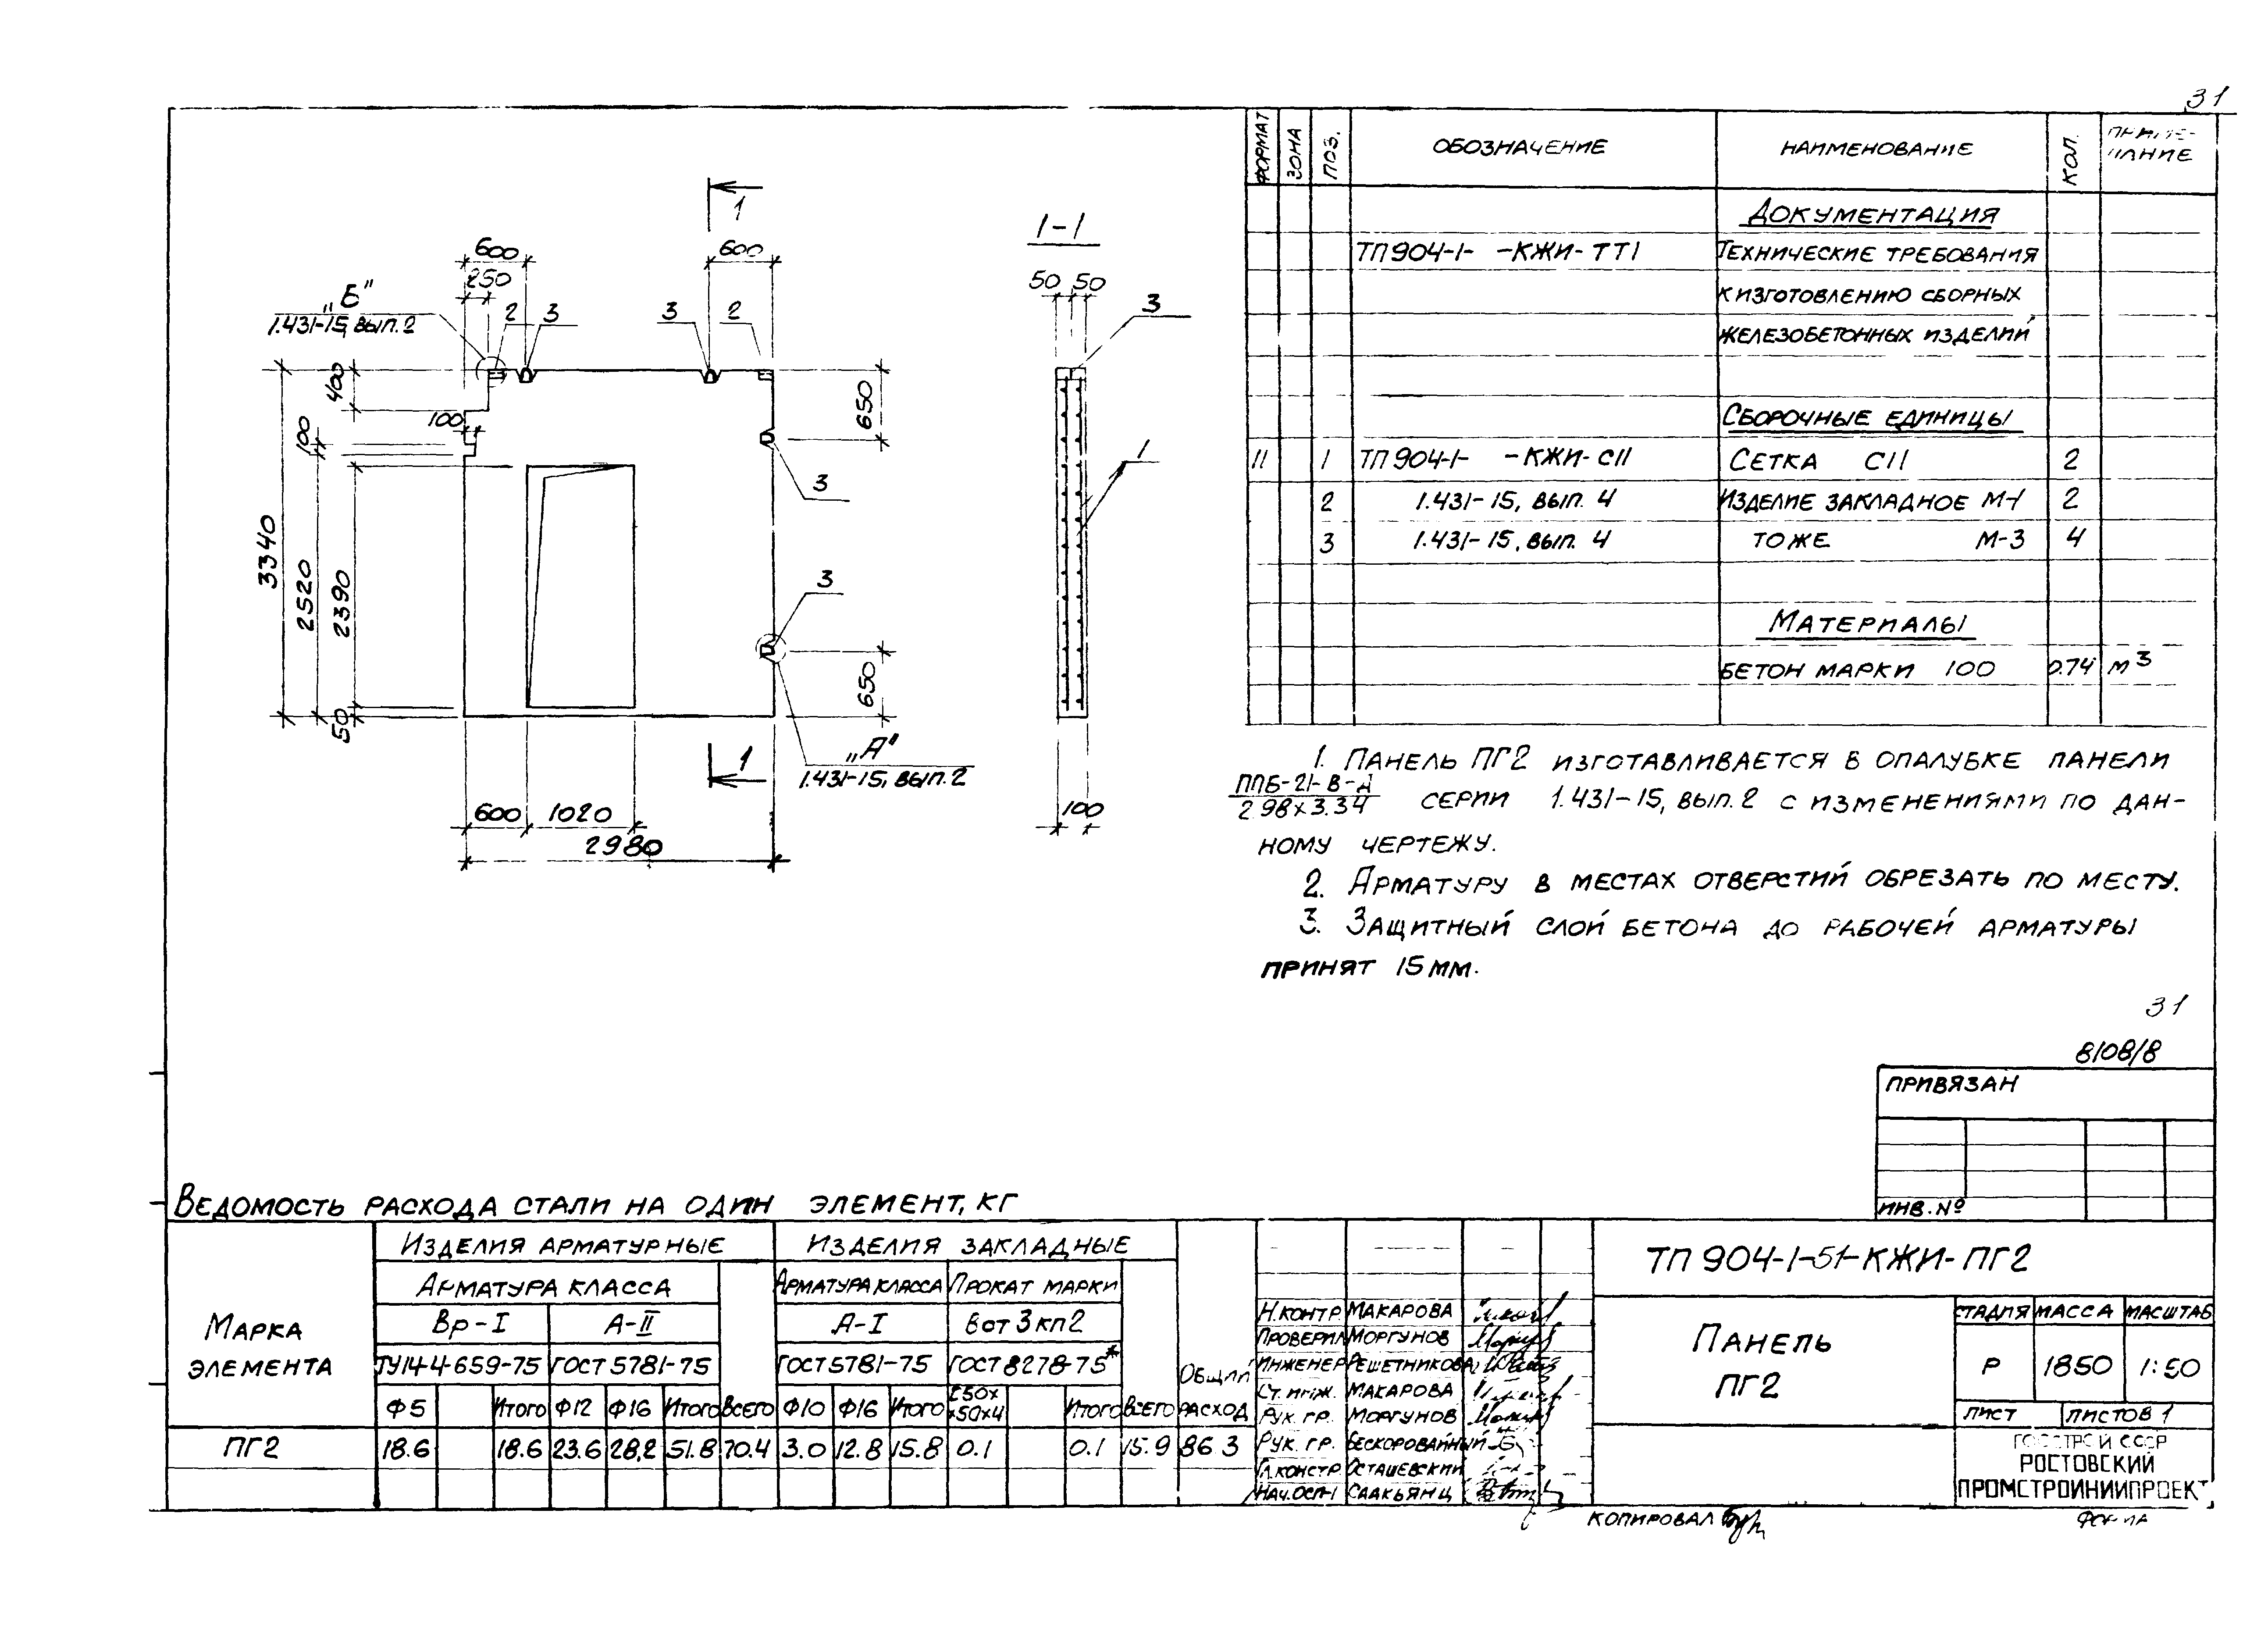 31
1
600
600
250
„Б"
1.431-15, вып. 2
2 3
3 2
400
100
100
3340
2520
2390
50
650
3
3
650
1
„А"
1.431-15, вып. 2
600 1020
2980
1-1
50 50
3
1
100
ФОРМАТ ЗОНА ПОЗ. ОБОЗНАЧЕНИЕ НАИМЕНОВАНИЕ КОЛ. ПРИМЕ-
ЧАНИЕ
ДОКУМЕНТАЦИЯ
ТП 904-1- -КЖИ-ТТ1 ТЕХНИЧЕСКИЕ ТРЕБОВАНИЯ
К ИЗГОТОВЛЕНИЮ СБОРНЫХ
ЖЕЛЕЗОБЕТОННЫХ ИЗДЕЛИЙ
СБОРОЧНЫЕ ЕДИНИЦЫ
11 1 ТП 904-1- -КЖИ-С11 СЕТКА С11 2
2 1.431-15, вып. 4 ИЗДЕЛИЕ ЗАКЛАДНОЕ М-1 2
3 1.431-15, вып. 4 ТОЖЕ М-3 4
МАТЕРИАЛЫ
БЕТОН МАРКИ 100 0.74 м3
1. ПАНЕЛЬ ПГ2 ИЗГОТАВЛИВАЕТСЯ В ОПАЛУБКЕ ПАНЕЛИ
ППБ-21-В-Д
2.98х3.34 СЕРИИ 1.431-15, вып. 2 С ИЗМЕНЕНИЯМИ ПО ДАН-
НОМУ ЧЕРТЕЖУ.
2. АРМАТУРУ В МЕСТАХ ОТВЕРСТИЙ ОБРЕЗАТЬ ПО МЕСТУ.
3. ЗАЩИТНЫЙ СЛОЙ БЕТОНА ДО РАБОЧЕЙ АРМАТУРЫ
ПРИНЯТ 15 ММ.
31
8108/8
ПРИВЯЗАН
ИНВ. №
ВЕДОМОСТЬ РАСХОДА СТАЛИ НА ОДИН ЭЛЕМЕНТ, КГ
МАРКА
ЭЛЕМЕНТА
ИЗДЕЛИЯ АРМАТУРНЫЕ ИЗДЕЛИЯ ЗАКЛАДНЫЕ
АРМАТУРА КЛАССА АРМАТУРА КЛАССА ПРОКАТ МАРКИ
Вр-I А-II А-I Вст 3 кп 2
ТУ14-4-659-75 ГОСТ 5781-75 ГОСТ 5781-75 ГОСТ 8278-75*
ОБЩИЙ
РАСХОД
Ф5 ИТОГО Ф12 Ф16 ИТОГО ВСЕГО Ф10 Ф16 ИТОГО С50х
х50х4 ИТОГО ВСЕГО
ПГ2 18.6 18.6 23.6 28.2 51.8 70.4 3.0 12.8 15.8 0.1 0.1 15.9 86 3
Н.КОНТР. МАКАРОВА
ПРОВЕРИЛ МОРГУНОВ
ИНЖЕНЕР РЕШЕТНИКОВА
СТ. ИНЖ. МАКАРОВА
РУК. ГР. МОРГУНОВ
РУК. ГР. БЕСКОРОВАЙНЫЙ
ГЛ.КОНСТР. ОСТАШЕВСКИЙ
СААКЬЯНЦ
ТП 904-1-51-КЖИ-ПГ2
ПАНЕЛЬ
ПГ2
СТАДИЯ МАССА МАСШТАБ
Р 1850 1:50
ЛИСТ ЛИСТОВ 1
ГОССТРОЙ СССР
РОСТОВСКИЙ
ПРОМСТРОЙНИИПРОЕКТ
КОПИРОВАЛ